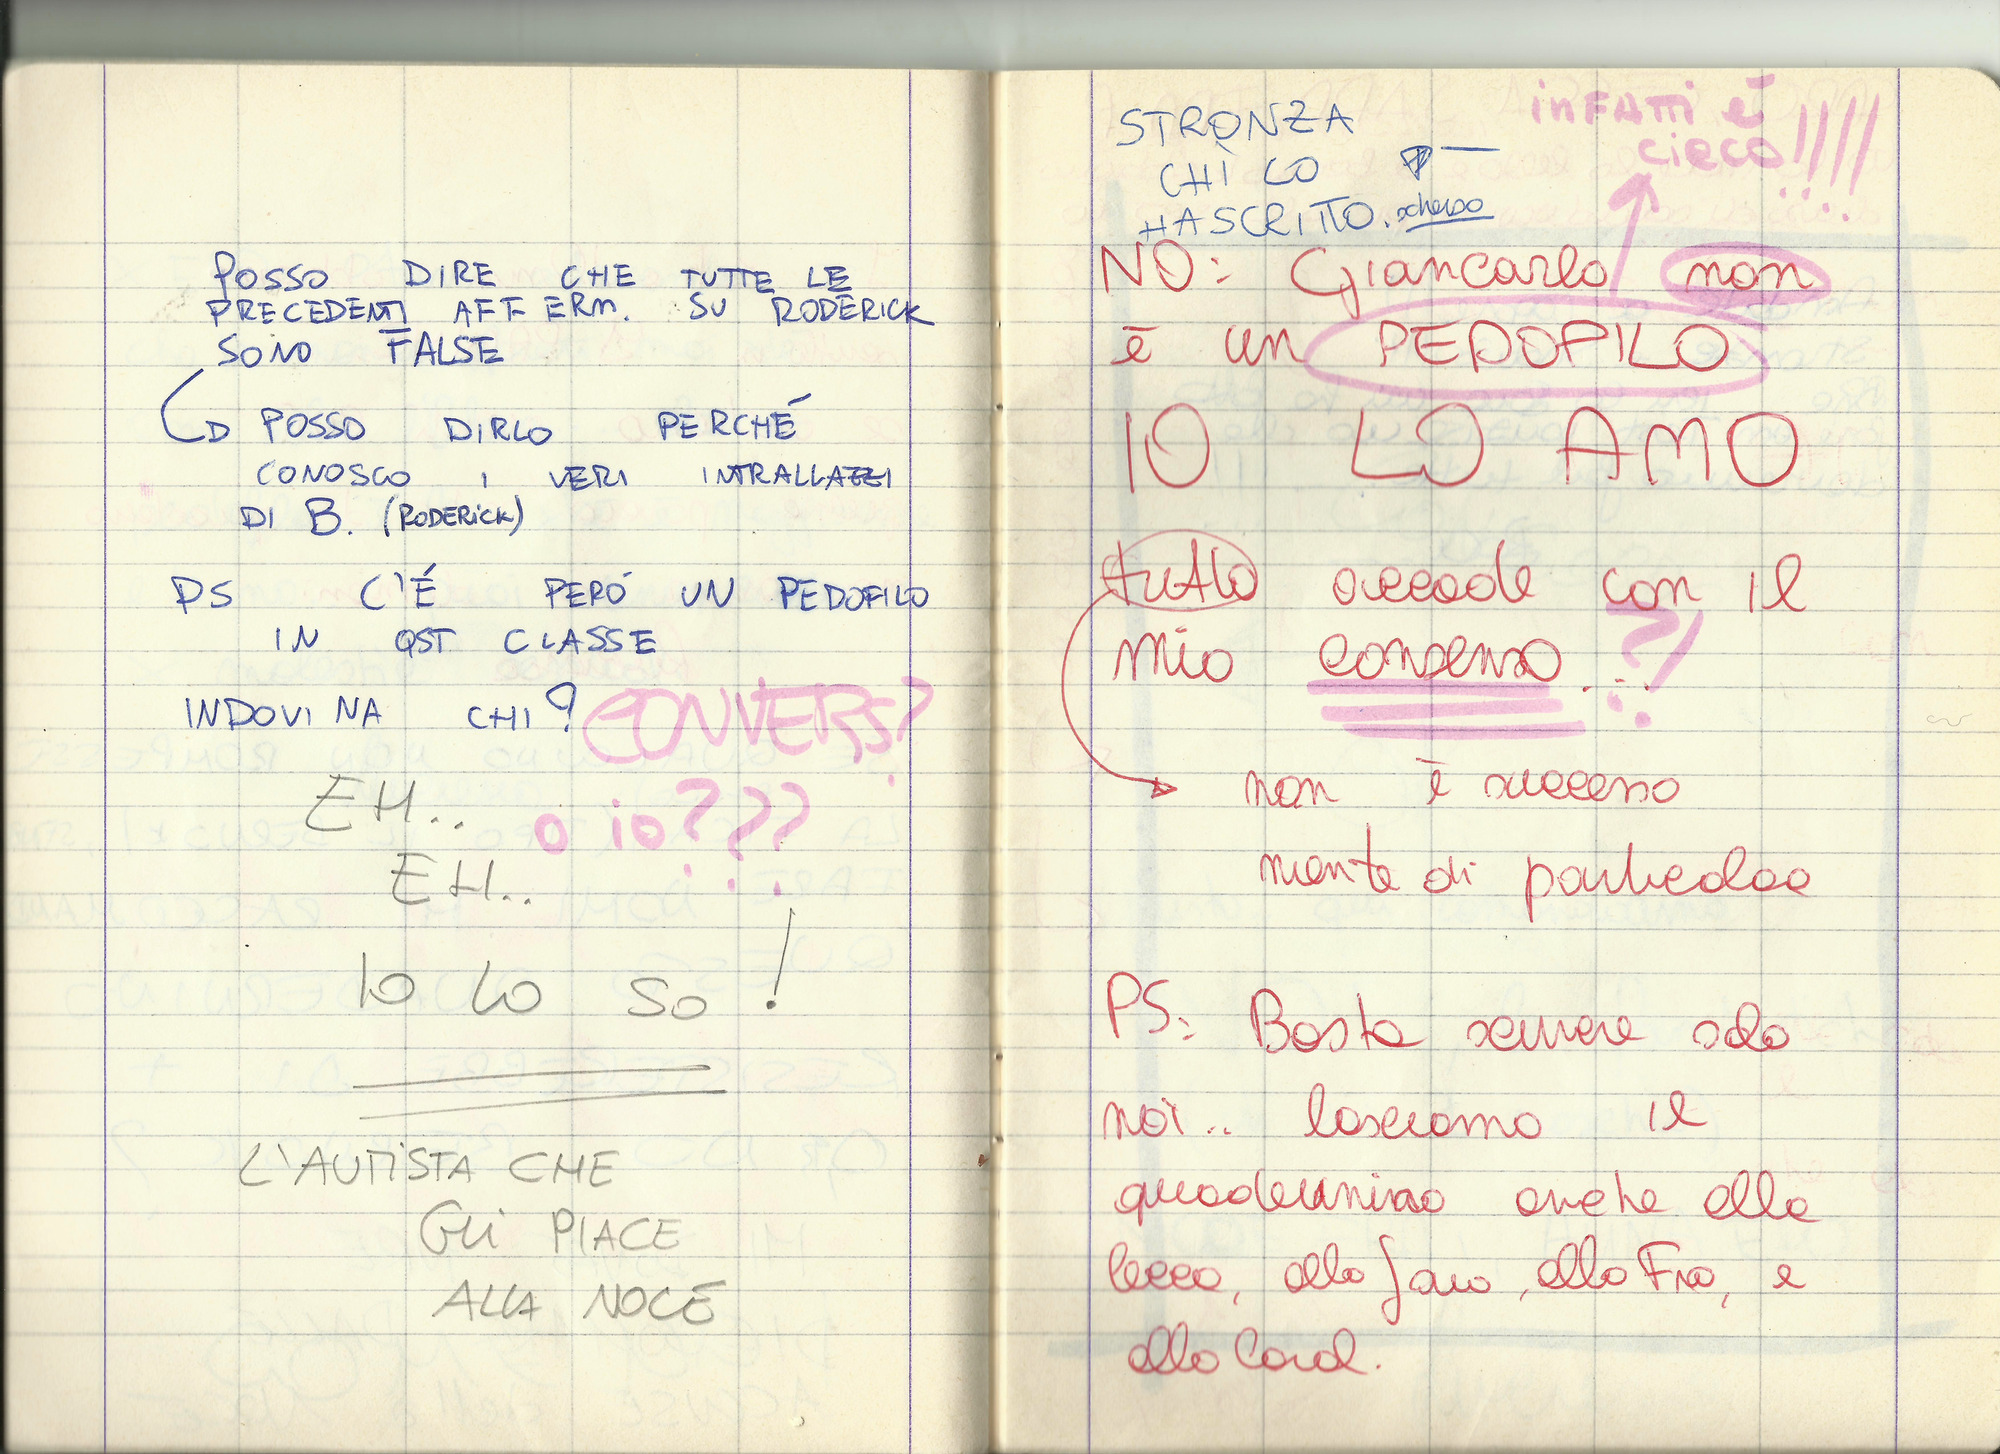 POSSO DIRE CHE TUTTE LE
PRECEDENTI AFFERM. SU RODERICK
SONO FALSE
POSSO DIRLO PERCHÉ
CONOSCO I VERI INTRALLAZZI
DI B. (RODERICK)
PS C'É PERÓ UN PEDOFILO
IN QST CLASSE
INDOVINA CHI?
CONVERS?
o io????
EH..
EH..
IO LO SO!
L'AUTISTA CHE
GLI PIACE
ALLA NOCE
STRONZA
CHÌ LO
HA SCRITTO. scherzo
inFATTi è
cieco!!!!!
NO: Giancarlo non
è un PEDOFILO
IO LO AMO
tutto accade con il
mio consenso...
?!
non è successo
niente di particolare
PS: Basta scrivere solo
noi.. lasciamo il
quadernino anche alla
lecca, alla Jaio, alla Fra, e
alla Carol.